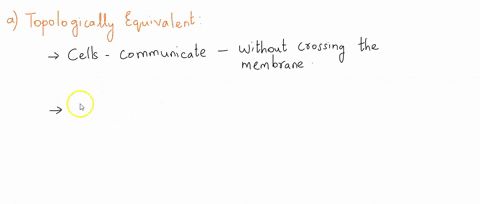 a) Topologically Equivalent:
→ Cells - communicate - without crossing the
membrane.
→